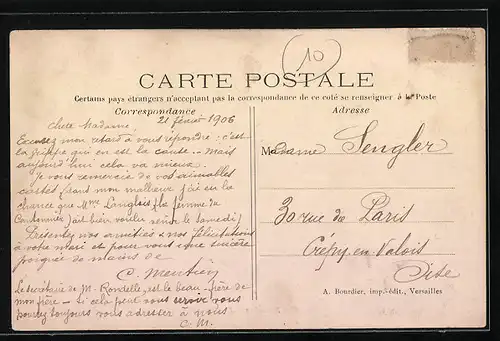 10
CARTE POSTALE
Certains pays étrangers n'acceptant pas la correspondance de ce coté se renseigner à la Poste
Correspondance
Adresse
21 février 1906
Chère Madame,
Excusez mon retard à vous répondre : c'est
la grippe qui en est la cause. Mais
aujourd'hui cela va mieux.
Je vous remercie de vos aimables
cartes, dans mon malheur j'ai eu la
chance que Mme Langlois (la femme du
Cordonnier) ait bien voulu venir le samedi!
Présentez nos amitiés & nos félicitations
à votre mari et pour vous une sincère
poignée de mains de
C. Mentien
Le secrétaire de M. Rondelle, est le beau-frère de
mon frère - si cela peut vous servir vous
pouvez toujours vous adresser à nous
C. M.
Madame Sengler
30 rue de Paris
Crépy en Valois
Oise
A. Bourdier, imp.-édit., Versailles